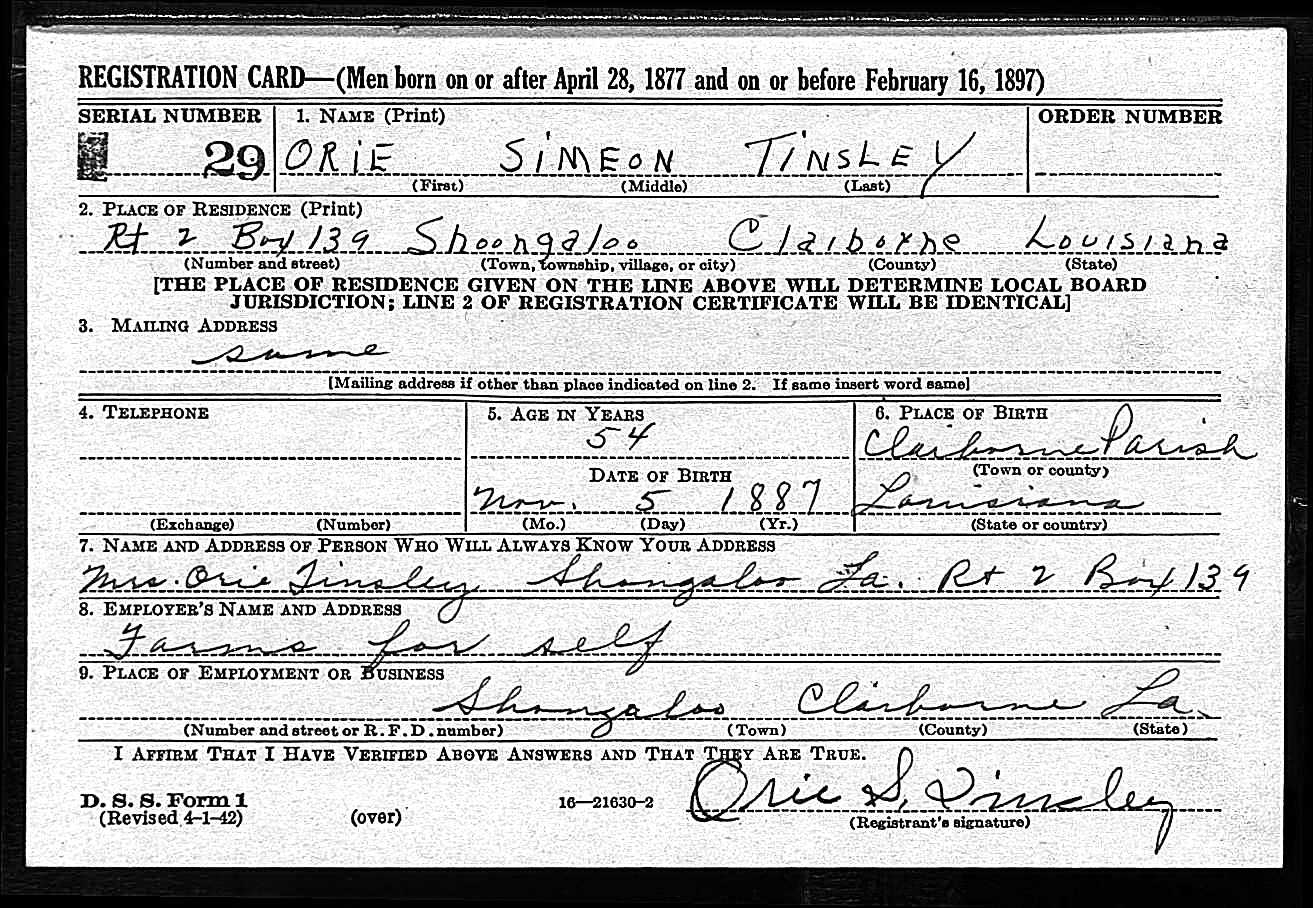 REGISTRATION CARD—(Men born on or after April 28, 1877 and on or before February 16, 1897)
SERIAL NUMBER 1. NAME (Print) ORDER NUMBER
29 ORIE SIMEON TINSLEY
(First) (Middle) (Last)
2. PLACE OF RESIDENCE (Print)
Rt 2 Box 139 Shoongaloo Claiborne Louisiana
(Number and street) (Town, township, village, or city) (County) (State)
[THE PLACE OF RESIDENCE GIVEN ON THE LINE ABOVE WILL DETERMINE LOCAL BOARD
JURISDICTION; LINE 2 OF REGISTRATION CERTIFICATE WILL BE IDENTICAL]
3. MAILING ADDRESS
same
[Mailing address if other than place indicated on line 2. If same insert word same]
4. TELEPHONE 5. AGE IN YEARS 6. PLACE OF BIRTH
54 Claiborne Parish
DATE OF BIRTH (Town or county)
Nov. 5 1887 Louisiana
(Exchange) (Number) (Mo.) (Day) (Yr.) (State or country)
7. NAME AND ADDRESS OF PERSON WHO WILL ALWAYS KNOW YOUR ADDRESS
Mrs. Orie Tinsley Shongaloo La. Rt 2 Box 139
8. EMPLOYER'S NAME AND ADDRESS
Farms for self
9. PLACE OF EMPLOYMENT OR BUSINESS
Shongaloo Claiborne La.
(Number and street or R. F. D. number) (Town) (County) (State)
I AFFIRM THAT I HAVE VERIFIED ABOVE ANSWERS AND THAT THEY ARE TRUE.
D. S. S. Form 1 16—21630-2 Orie S. Tinsley
(Revised 4-1-42) (over) (Registrant's signature)